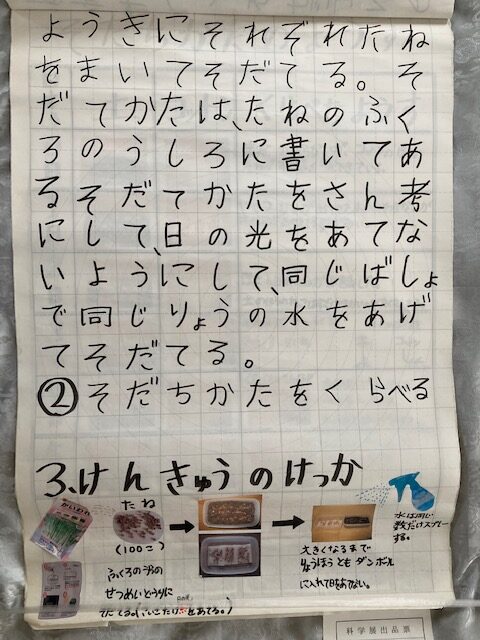 ようきにそれぞれたね
をまいてそだてる。そ
だてかたは、たねのふく
ろのうしろに書いてあ
るそだてかたをさん考
にして、日の光をあてな
いようにして、同じばしょ
で同じりょうの水をあげ
てそだてる。
②そだちかたをくらべる
3、けんきゅうのけっか
かいわれ
たね
(100こ)
大きくなるまで
りょうほうともダンボール
に入れて日をあてない。
水は同じ
数だけスプレー
する。
ふくろのうらの
せつめいどうりに
科学展出品票